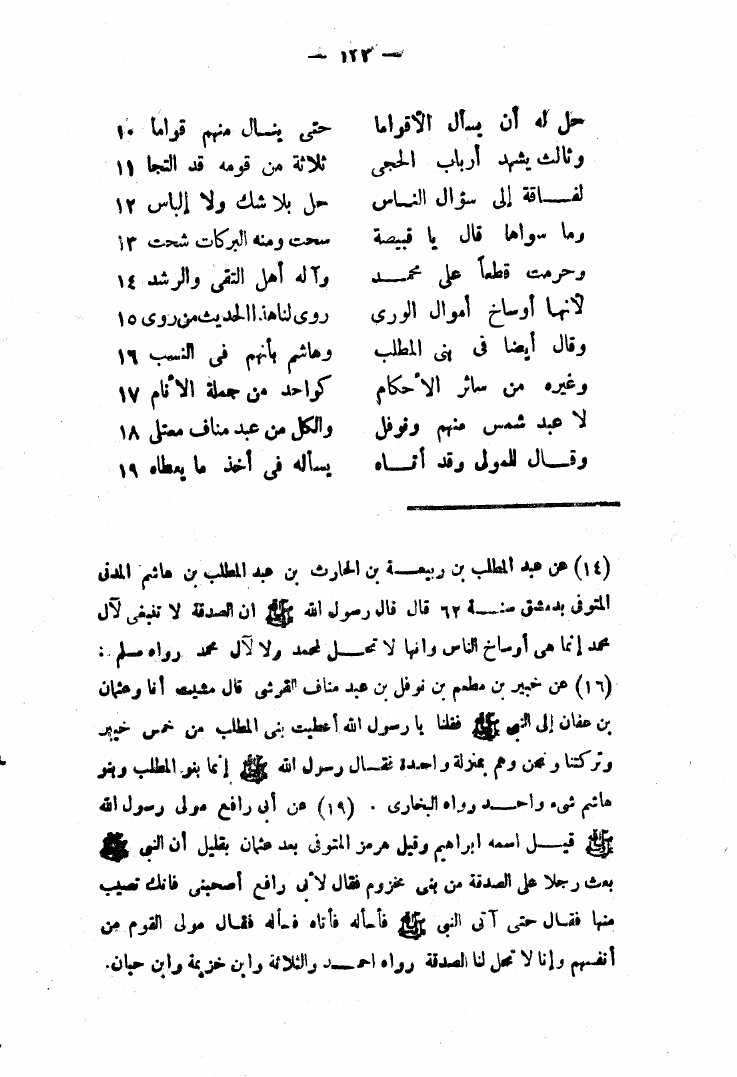 — ١٢٣ —
حل له أن يسأل الأقواما حتى ينال منهم قواما ١٠
وثالث يشهد أرباب الحجى ثلاثة من قومه قد التجا ١١
لفاقة إلى سؤال الناس حل بلا شك ولا إلباس ١٢
وما سواها قال يا قبيصة سحت ومنه البركات شحت ١٣
وحرمت قطعاً على محمد وآله أهل التقى والرشد ١٤
لأنها أوساخ أموال الورى روى لنا هذا الحديث من روى ١٥
وقال أيضا فى بنى المطلب وهاشم بأنهم فى النسب ١٦
وغيره من سائر الأحكام كواحد من جملة الأنام ١٧
لا عبد شمس منهم ونوفل والكل من عبد مناف معتلى ١٨
وقال للمولى وقد أتاه يسأله فى أخذ ما يعطاه ١٩
(١٤) عن عبد المطلب بن ربيعة بن الحارث بن عبد المطلب بن هاشم المدنى
المتوفى بدمشق سنة ٦٢ قال قال رسول الله ﷺ ان الصدقة لا تنبغى لآل
محمد إنما هى أوساخ الناس وانها لا تحل لمحمد ولا لآل محمد رواه مسلم :
(١٦) عن جبير بن مطعم بن نوفل بن عبد مناف القرشى قال مشيت أنا وعثمان
بن عفان إلى النبى ﷺ فقلنا يا رسول الله أعطيت بنى المطلب من خمس خيبر
وتركتنا ونحن وهم بمنزلة واحدة فقال رسول الله ﷺ إنما بنو المطلب وبنو
هاشم شىء واحد رواه البخارى . (١٩) عن أبى رافع مولى رسول الله
ﷺ قيل اسمه ابراهيم وقيل هرمز المتوفى بعد عثمان بقليل أن النبى ﷺ
بعث رجلا على الصدقة من بنى مخزوم فقال لأبى رافع أصحبنى فانك تصيب
منها فقال حتى آتى النبى ﷺ فأسأله فأتاه فسأله فقال مولى القوم من
أنفسهم وإنا لا تحل لنا الصدقة رواه احمد والثلاثة وابن خزيمة وابن حبان.